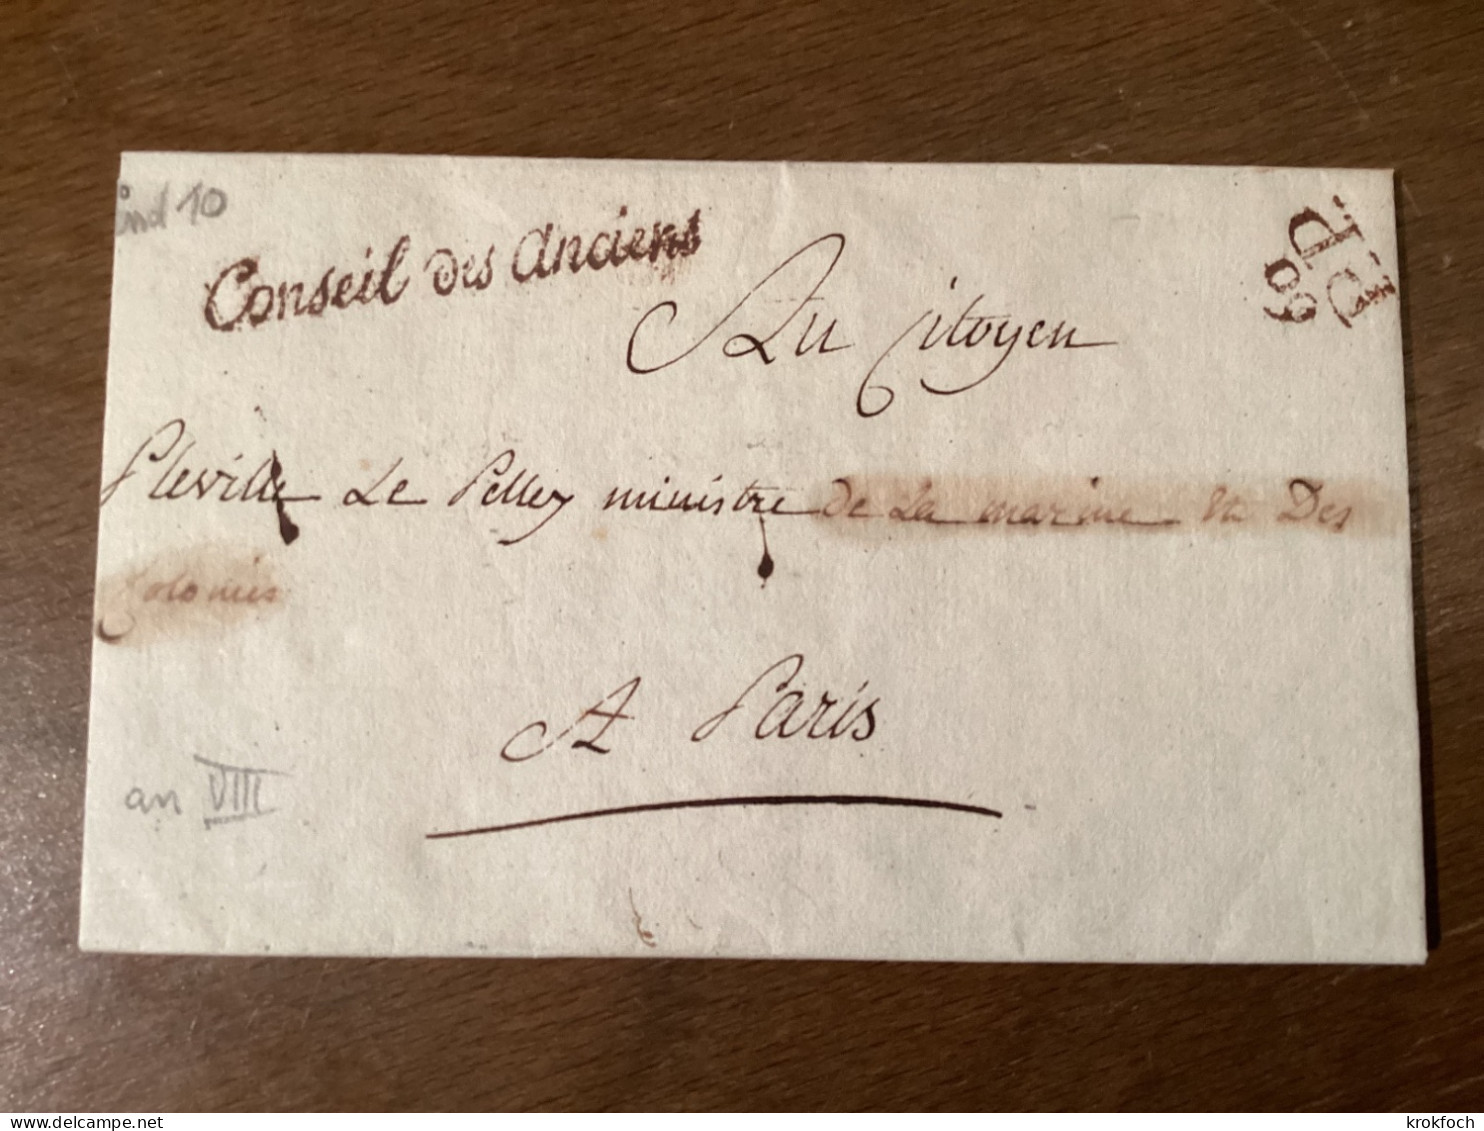 ind 10
Conseil des Anciens
P.P.
60
Au Citoyen
Pleville Le Pelley ministre de La marine & Des
Colonies
A Paris
an VIII
delcampe.net
krokfoch